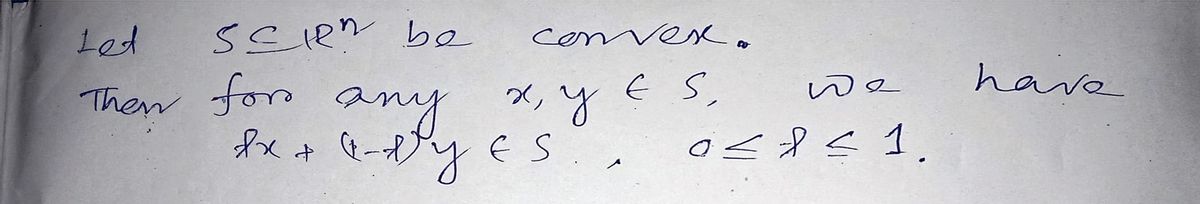 Let S ⊆ ℝⁿ be convex.
Then for any x, y ∈ S, we have
λx + (1-λ)y ∈ S., 0 ≤ λ ≤ 1.